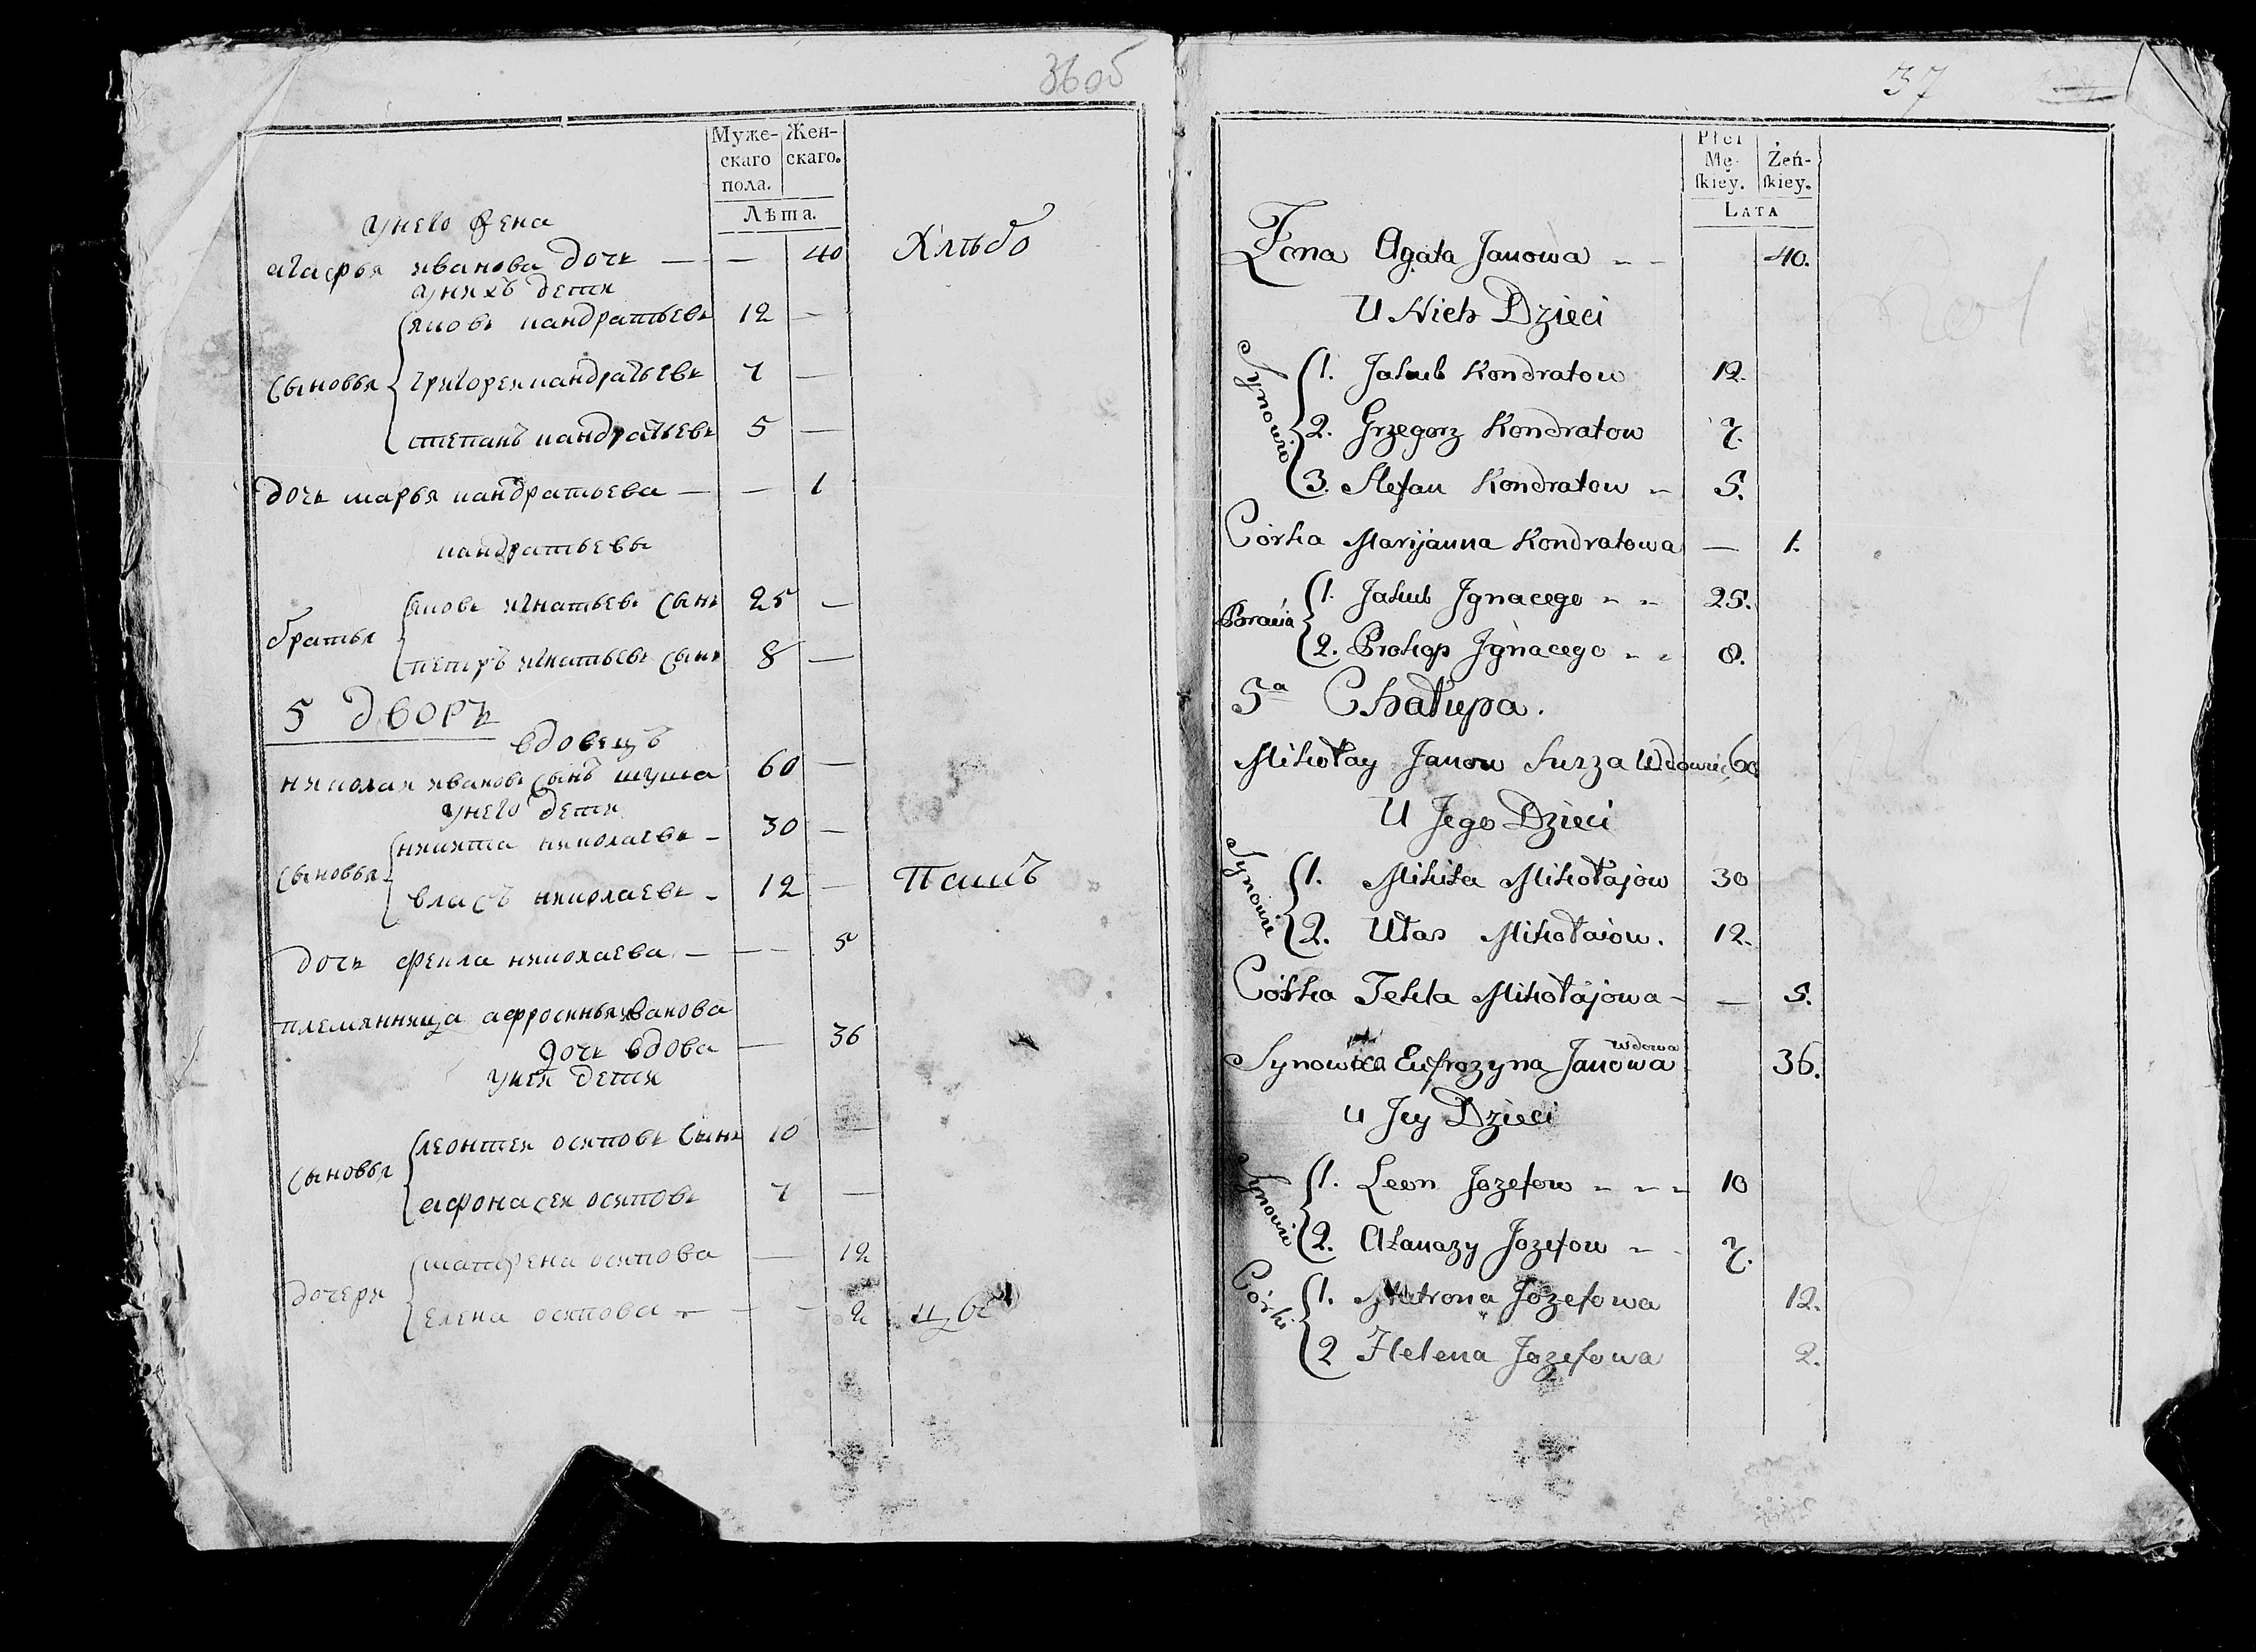 36 об
Муже-
скаго
пола.
Жен-
скаго.
Лѣта.
у него жена
агафья иванова дочь — — 40
Хлѣбо
у нихъ дети
яковъ кандратьевъ 12 —
Сыновья
григореи кандратьевъ 7 —
степанъ кандратьевъ 5 —
дочь марья кандратьева — — 1
кандратьевы
яковъ игнатьевъ сынъ 25 —
братья
петръ игнатьевъ сынъ 8 —
5 дворъ
вдовецъ
николаи ивановъ сынъ 60 —
у него дети
никита николаевъ - 30 —
Сыновья
власъ николаевъ - 12 —
дочь фекла николаева — — 5
племянница афросинья иванова
дочь вдова — 36
у нея дети
леонтеи осиповъ сынъ 10 —
Сыновья
афонасеи осиповъ 7 —
матрена осипова — 12
дочери
елена осипова — — 2
37
Płci
Mę-
skiey.
Żeń-
skiey.
Lata
Żona Agata Janowa 40.
U Nich Dzieci
Synowie
1. Jakub Kondratow 12.
2. Grzegorz Kondratow 7.
3. Stefan Kondratow 5.
Córka Marijanna Kondratowa — 1.
Bracia
1. Jakub Jgnacego 25.
2. Prokop Jgnacego 8.
5a Chałupa.
Mikołay Janow Surza Wdowiec 60
U Jego Dzieci
Synowie
1. Mikita Mikołajow 30
2. Ułas Mikołaiow. 12.
Córka Tekla Mikołajowa — 5.
wdowa
Synowica Eufrozyna Janowa 36.
u Jey Dzieci
Synowie
1. Leon Jozefow 10
2. Atanazy Jozefow 7.
Córki
1. Matrona Jozefowa 12.
2 Helena Jozefowa 2.